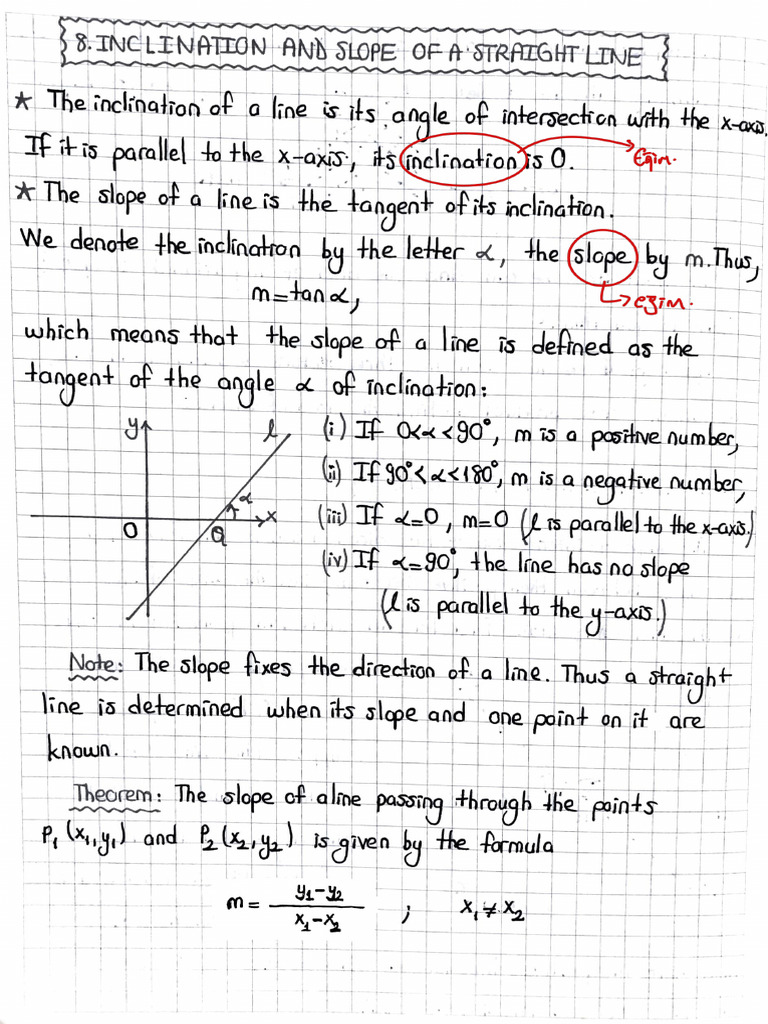 8. INCLINATION AND SLOPE OF A STRAIGHT LINE
* The inclination of a line is its angle of intersection with the x-axis.
If it is parallel to the x-axis, its inclination is 0. Eğim.
* The slope of a line is the tangent of its inclination.
We denote the inclination by the letter α, the slope by m. Thus,
m=tanα, → eğim.
which means that the slope of a line is defined as the
tangent of the angle α of inclination:
y l (i) If 0<α<90°, m is a positive number,
α (ii) If 90°<α<180°, m is a negative number,
O Q x (iii) If α=0, m=0 (l is parallel to the x-axis.)
(iv) If α=90°, the line has no slope
(l is parallel to the y-axis.)
Note: The slope fixes the direction of a line. Thus a straight
line is determined when its slope and one point on it are
known.
Theorem: The slope of aline passing through the points
P₁(x₁,y₁) and P₂(x₂,y₂) is given by the formula
m = y₁-y₂ / x₁-x₂ ; x₁≠x₂